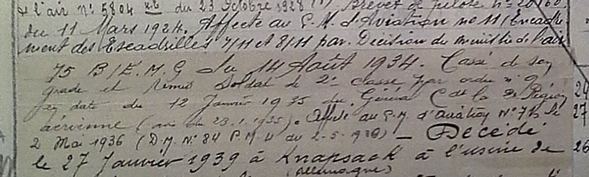 l'air n° 5804 du 23 Octobre 1928 Brevet de pilote n° 20160
du 11 Mars 1924. Affecté au P.M. d'Aviation no 11 Encadre
ment des Escadrilles 7/11 et 8/11 par Décision du Ministre de l'air
75 B/E.M.G du 14 Août 1934. Cassé de son
grade et remis Soldat de 2e classe par ordre n° 9
en date du 12 Janvier 1935 du Général Ct la 2e Région
aérienne du P.M d'aviation N° 72 le
2 Mai 1936 (D.M. N° 84 P.M. du 2-5-1936) - Décédé
le 27 Janvier 1939 à Knapsack à l'usine de
(Allemagne)
24
27
26